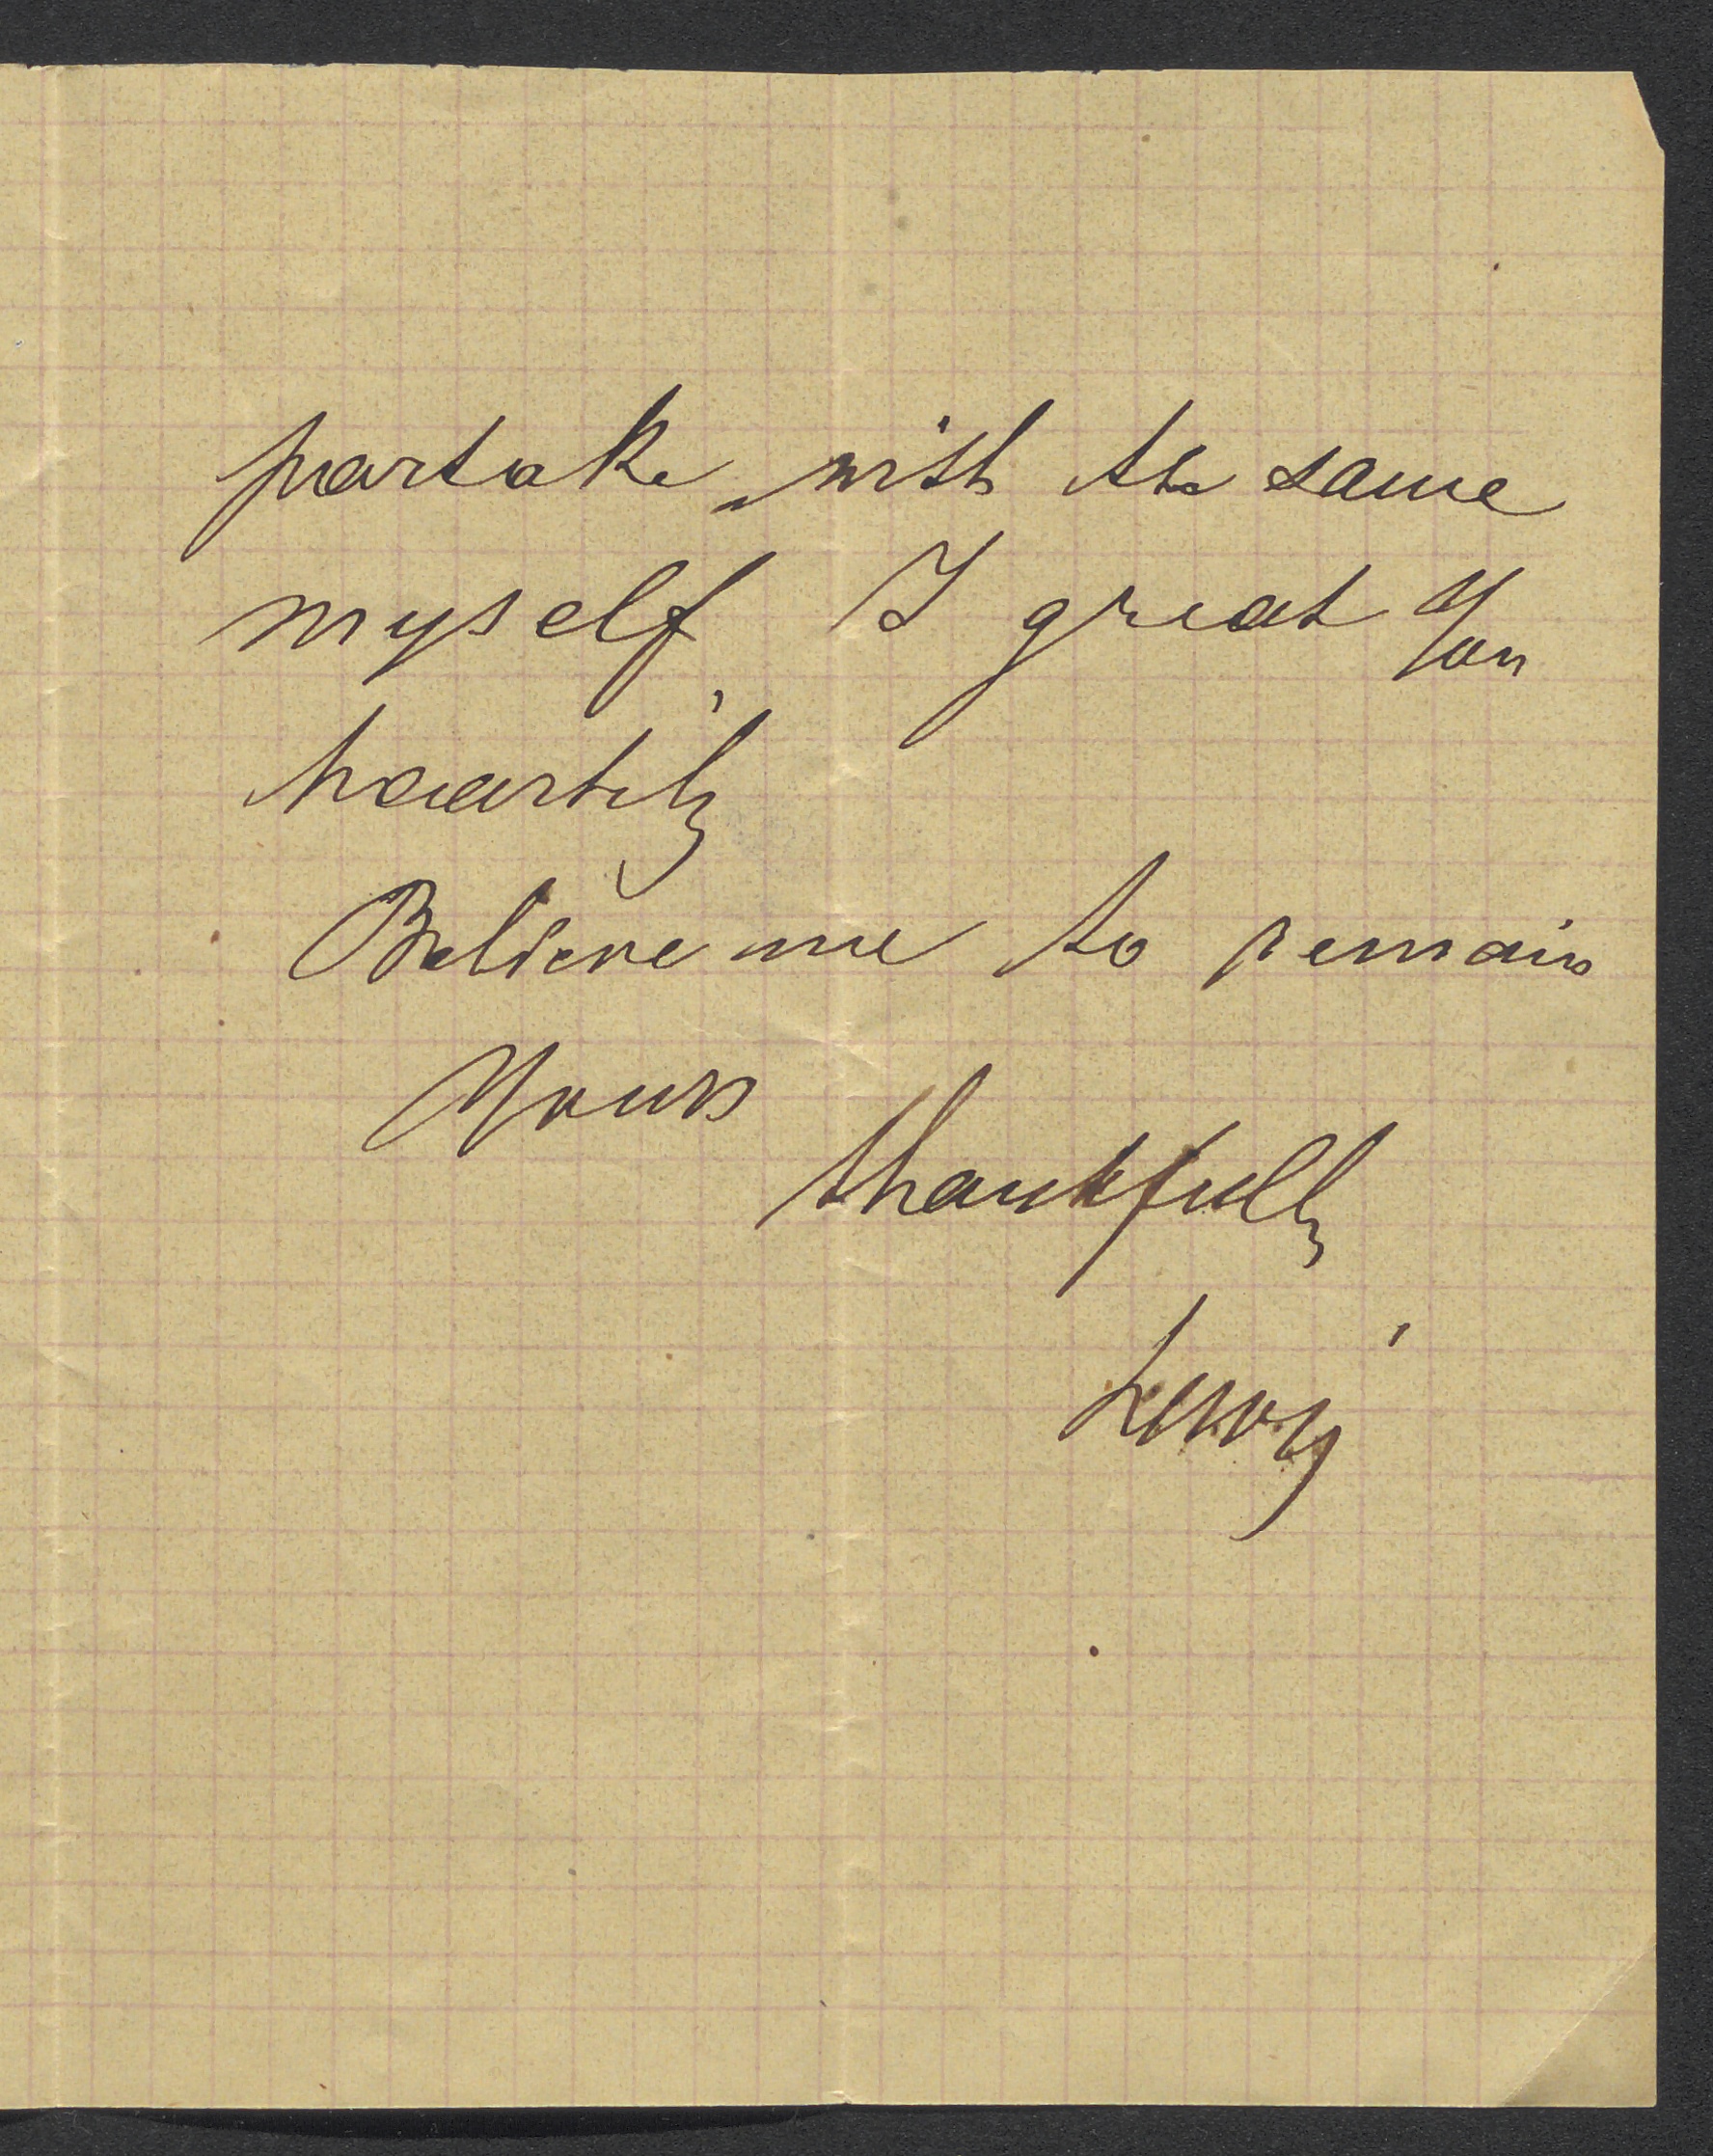 partake with the same
myself I great You
heartily
Believe me to remain
Yours
thankfully